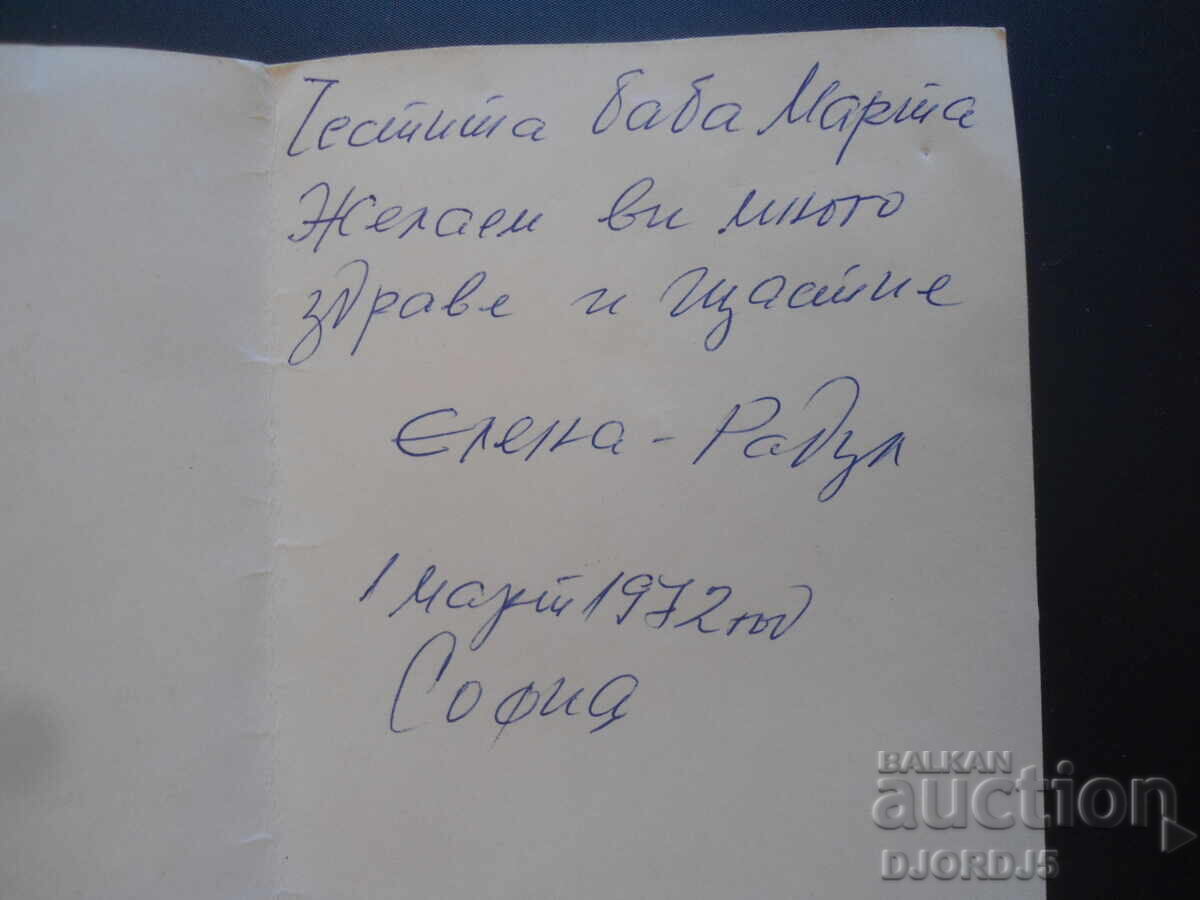 Честита баба Марта
Желаем ви много
здраве и щастие
Елена - Радул
1 март 1972 год
София
BALKAN
auction
DJORDJ5